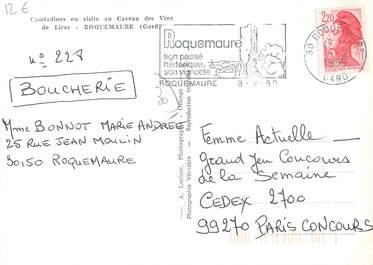 12 €
Comtadines en visite au Caveau des Vins
de Lirac - ROQUEMAURE (Gard)
n° 228
BOUCHERIE
Mme BONNOT MARIE ANDREE
25 RUE JEAN MOULIN
30150 ROQUEMAURE
Roquemaure
son passé
historique,
son vignoble
ROQUEMAURE 8-2-89
30 ROQUEMAURE
GARD
2,20
Photographie Véritable - Reproduction
Femme Actuelle
GRAND JEU CONCOURS
de la Semaine
CEDEX 2700
99270 PARIS CONCOURS